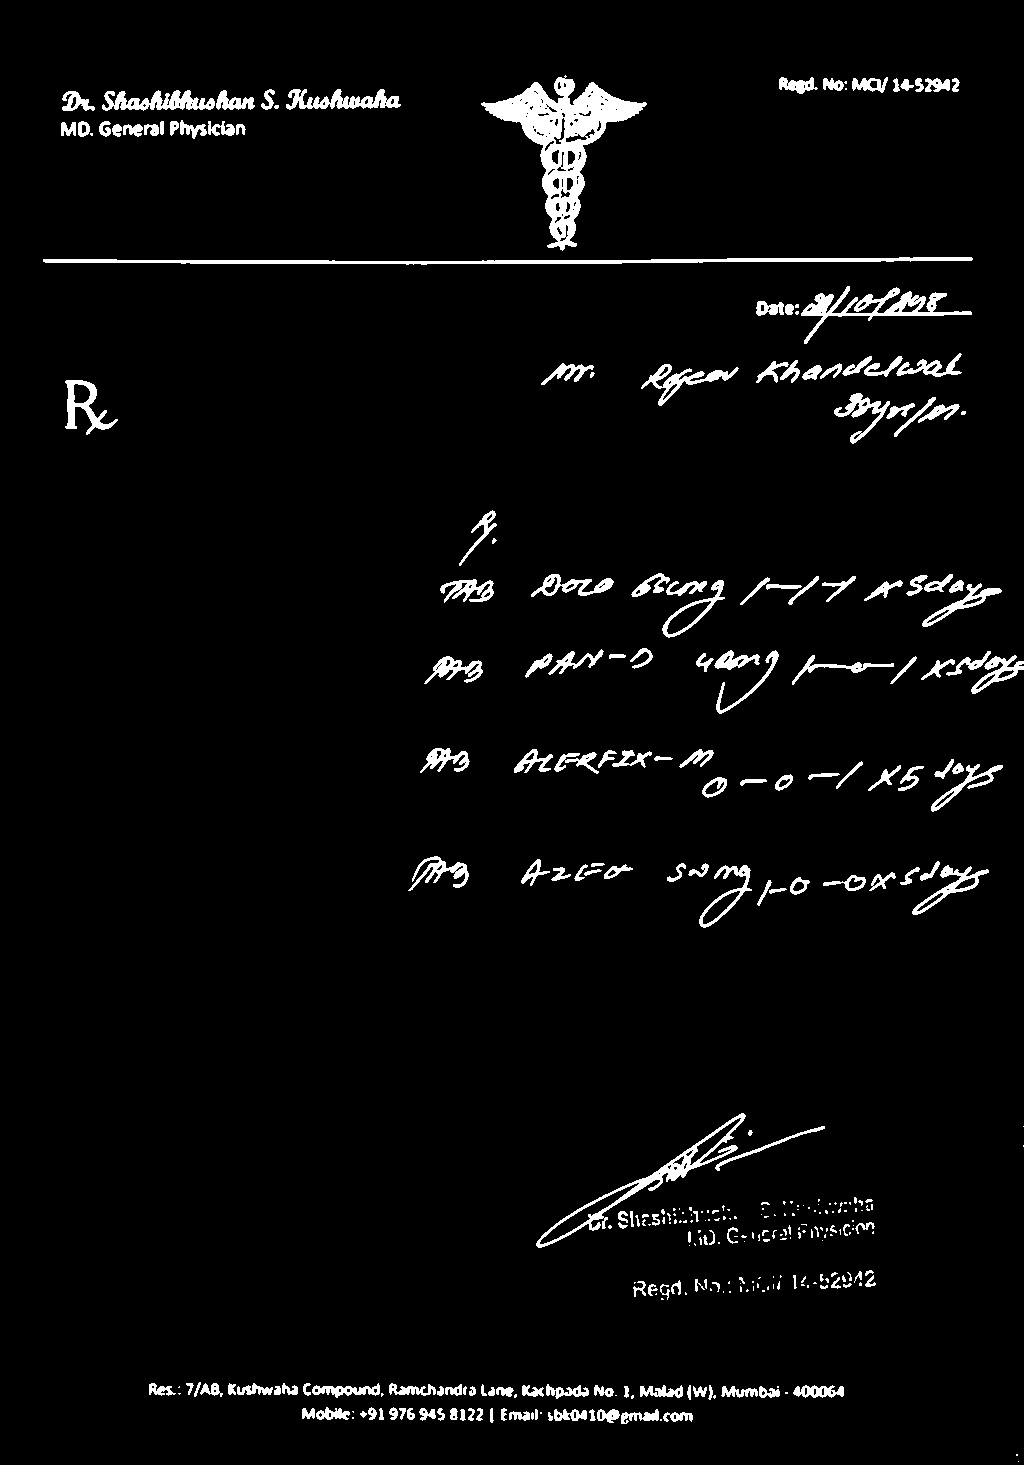 Dr. Shashibhushan S. Kushwaha
MD. General Physician
Regd. No: MCI/ 14-52942
Date: /10/
Mr. Rajeev Khandelwal
yrs/M.
Rx
Rx.
TAB DOLO 650mg 1-1-1 x 5days
TAB PAN-D 40mg 1-0-1 x 5days
TAB ALERFIX-M 0-0-1 x 5 days
TAB 500mg 1-0-0 x 5days
Dr. Shashibhush. S. Kushwaha
MD. General Physician
Regd. No.: MCI/ 14-52942
Res.: 7/AB, Kushwaha Compound, Ramchandra Lane, Kachpada No. 1, Malad (W), Mumbai - 400064
Mobile: +91 976 945 8122 | Email: sbk0410@gmail.com